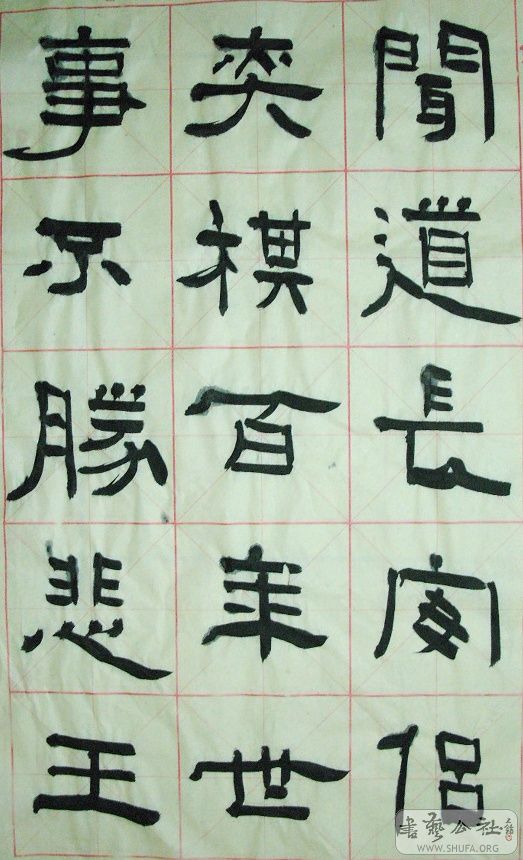 聞道長安佀
奕棋百年世
事不勝悲王
書藝公社
WWW.SHUFA.ORG